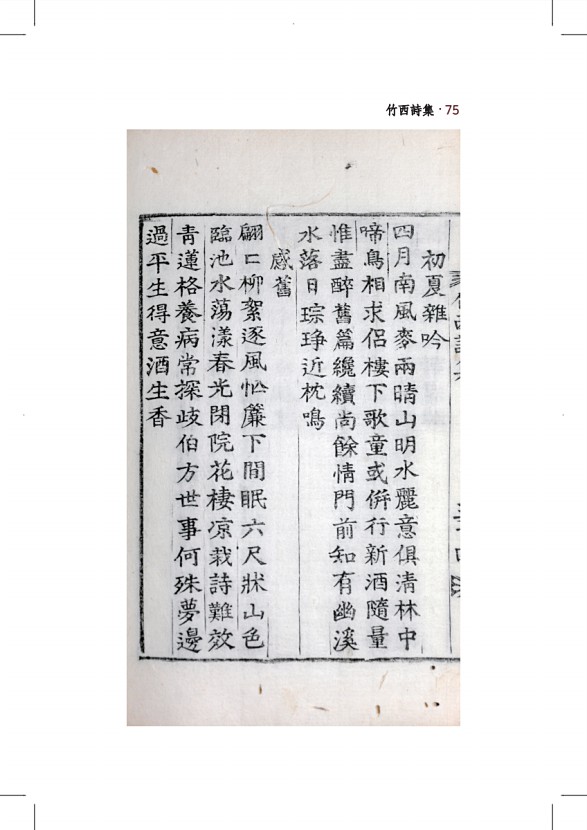 竹西詩集 · 75
初夏雜吟
四月南風麥雨晴山明水麗意俱淸林中
啼鳥相求侶樓下歌童或倂行新酒隨量
惟盡醉舊篇纔續尙餘情門前知有幽溪
水落日琮琤近枕鳴
感舊
翩々柳絮逐風忙簾下閒眠六尺牀山色
臨池水蕩漾春光閉院花棲凉栽詩難效
靑蓮格養病常探歧伯方世事何殊夢邊
過平生得意酒生香